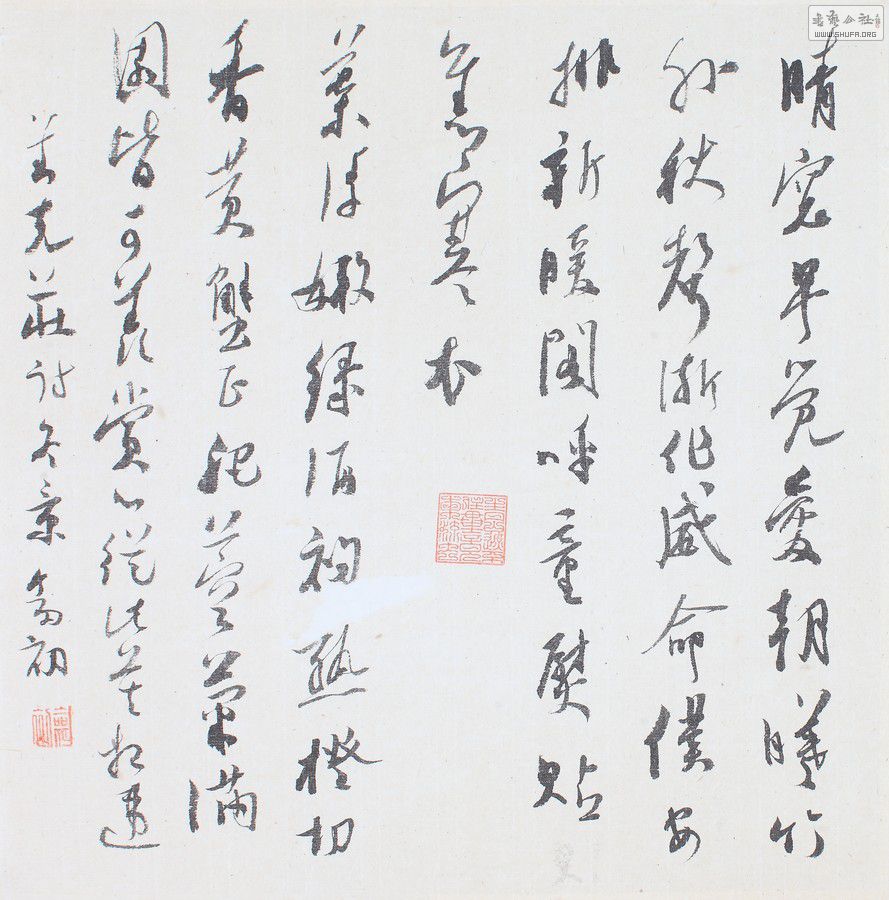 晴窗早覺愛朝曦竹
外秋聲漸作威命僕安
排新暖閣呼童熨貼
舊寒衣
葉浮嫩綠酒初熟橙切
香黃蟹正肥蓉菊滿
園皆可羨賞心從此莫相違
克莊詩冬景 初
書藝公社
WWW.SHUFA.ORG